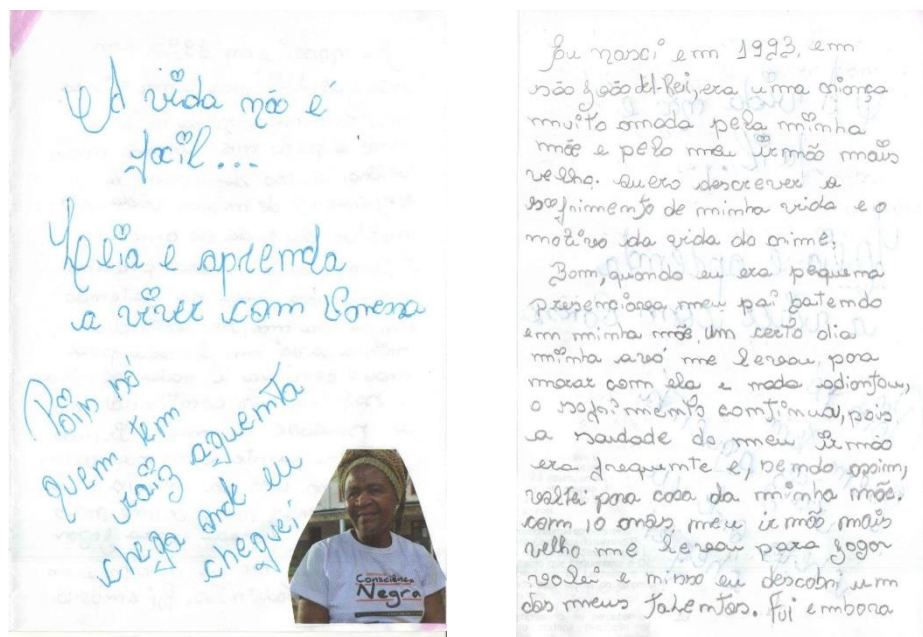 A vida não é
facil...
Leia e aprenda
a viver com Vanessa
Pois só
quem tem
raiz aguenta
chega onde eu
cheguei
Consciência
Negra
Eu nasci em 1993, em
são João del-Rei, era uma criança
muito amada pela minha
mãe e pelo meu irmão mais
velho. Quero descrever o
sofrimento de minha vida e o
motivo da vida do crime.
Bom, quando eu era pequena
presenciava meu pai batendo
em minha mãe, um certo dia
minha avó me levou, para
morar com ela e nada adiantou,
o sofrimento continua, pois
a saudade do meu irmão
era frequente e, sendo assim,
voltei para casa da minha mãe.
com 10 anos, meu irmão mais
velho me levou para jogar
volei e nisso eu descobri um
dos meus talentos. Fui embora